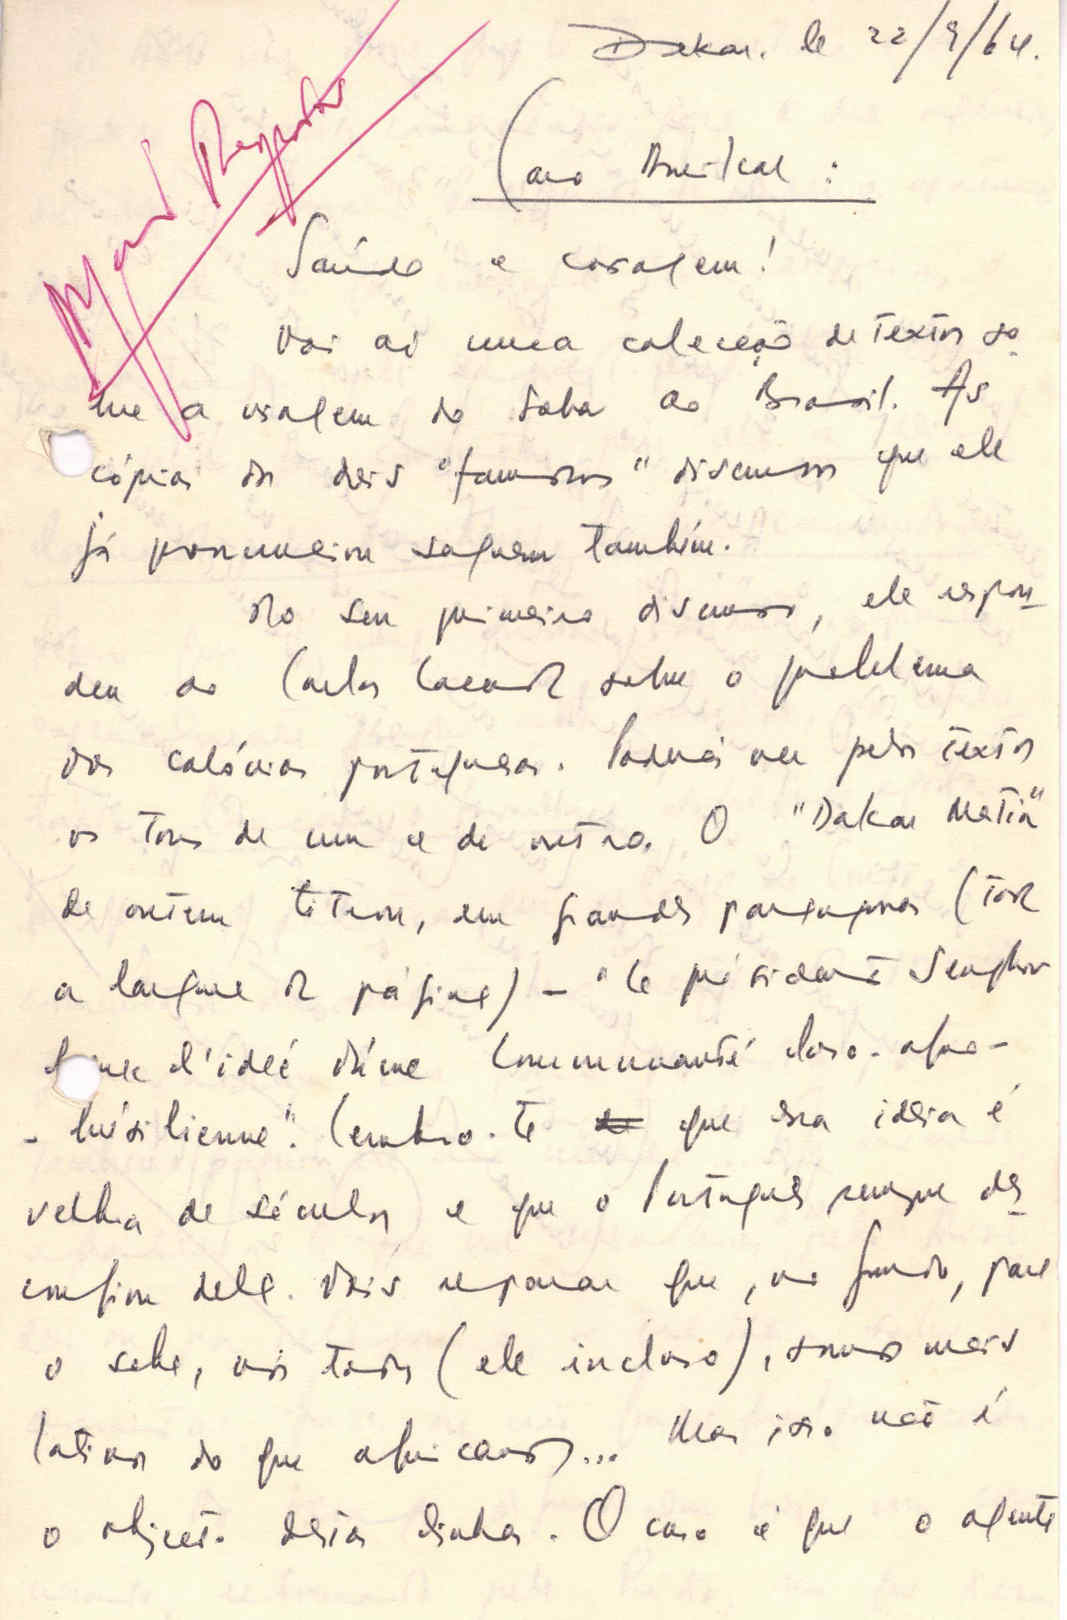 Dakar. le 22/9/64.
Caro Amílcar:
Saúde e coragem!
Vai aí uma colecção de textos so-
bre a viagem do Saba ao Brasil. As
cópias dos dois "famosos" discursos que ele
já pronunciou seguem também.
No seu primeiro discurso, ele respon-
deu ao Carlos Lacerda sobre o problema
das colónias portuguesas. Poderás ver pelos textos
os tons de um e de outro. O "Dakar Matin"
de ontem titrou, em grandes parangonas (toda
a largura da página) - "Le président Senghor
lance l'idée d'une Communauté luso-afro-
-brésilienne". Lembro-te que essa ideia é
velha de séculos e que o Português sempre des-
confiou dela. Vais reparar que, no fundo, para
o sabe, nós todos (ele incluso), somos mais
latinos do que africanos... Mas isso não é
o objecto destas linhas. O caso é que o agente